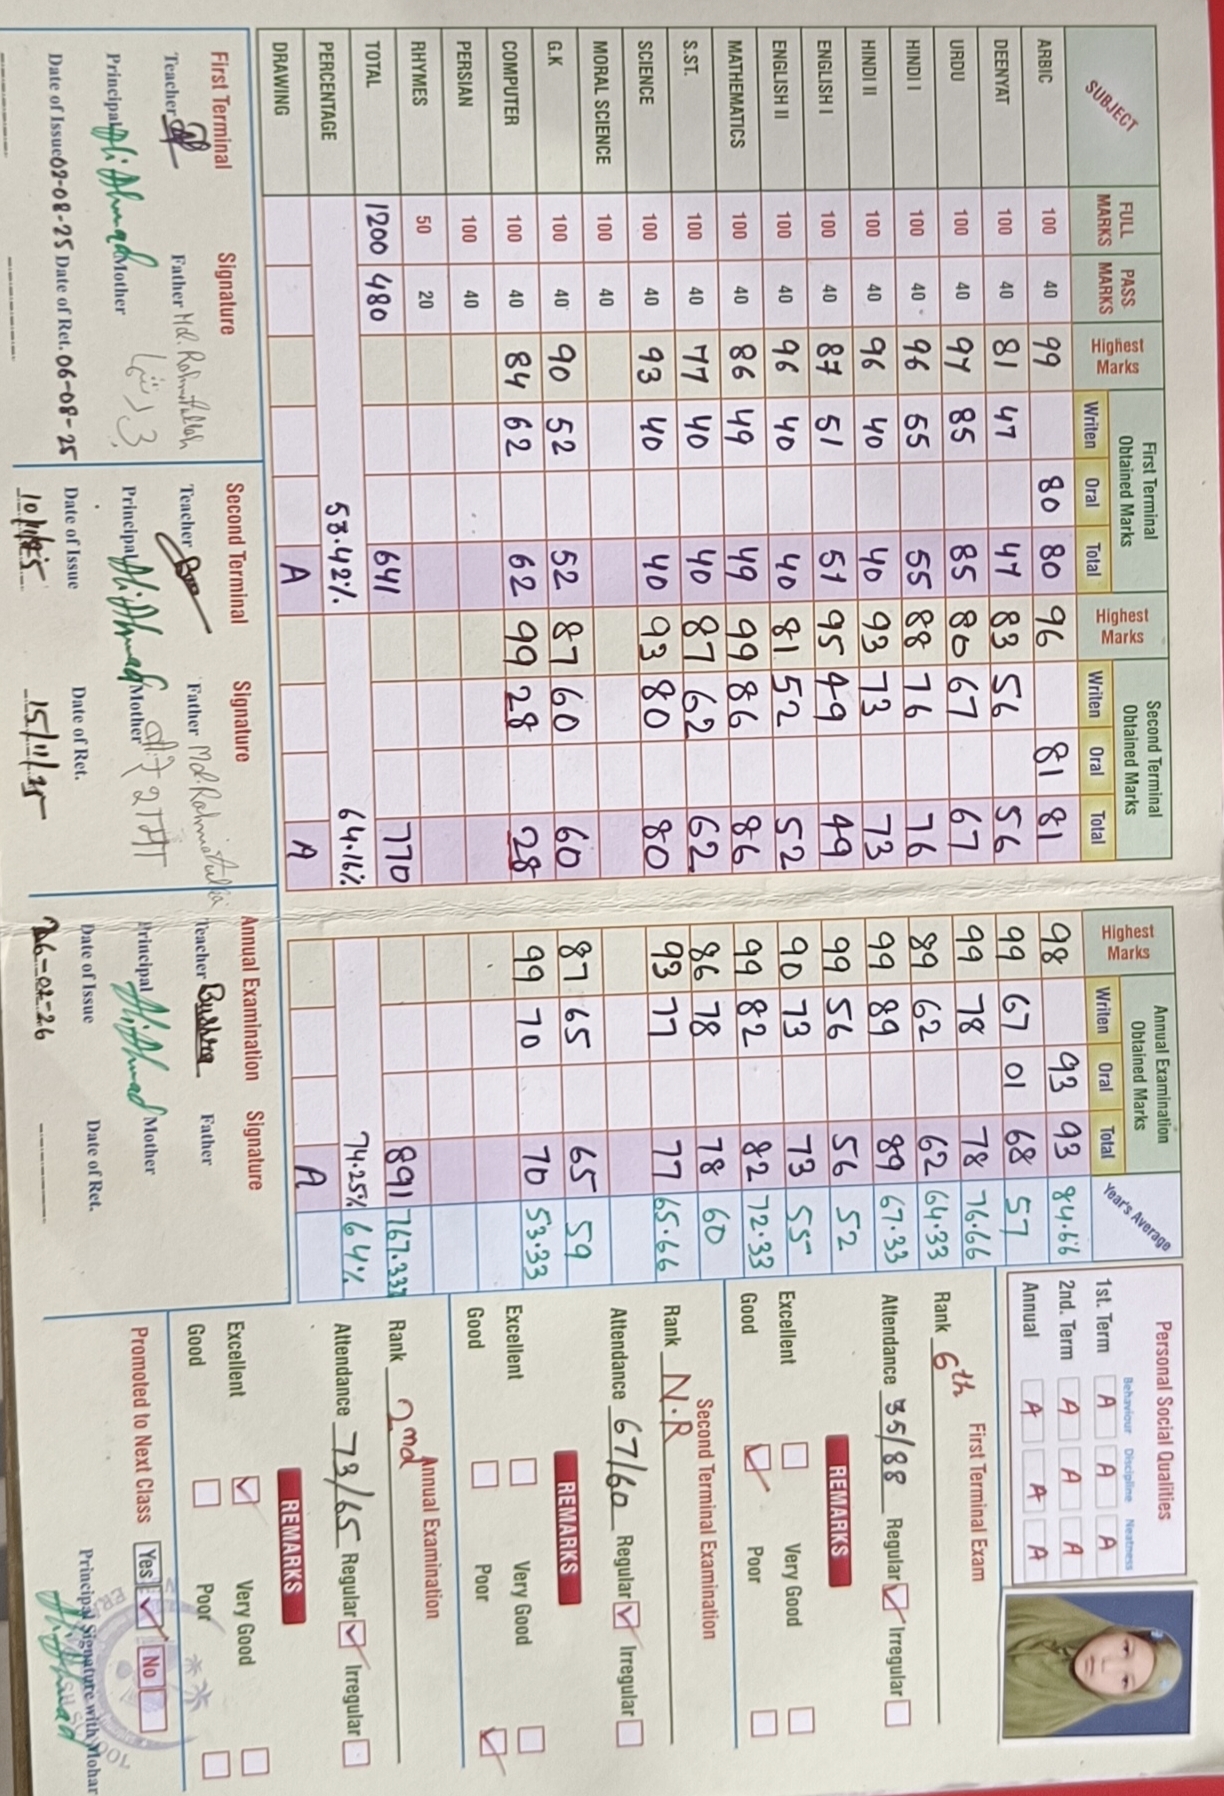 SUBJECT FULL MARKS PASS MARKS Highest Marks First Terminal Obtained Marks Writen Oral Total Highest Marks Second Terminal Obtained Marks Writen Oral Total Highest Marks Annual Examination Obtained Marks Writen Oral Total Year's Average
ARBIC 100 40 99 80 80 96 81 81 98 93 93 84.66
DEENYAT 100 40 81 47 47 83 56 56 99 67 01 68 57
URDU 100 40 97 85 85 80 67 67 99 78 78 76.66
HINDI I 100 40 96 55 55 88 76 76 89 62 62 64.33
HINDI II 100 40 96 40 40 93 73 73 99 89 89 67.33
ENGLISH I 100 40 87 51 51 95 49 49 99 56 56 52
ENGLISH II 100 40 96 40 40 81 52 52 90 73 73 55
MATHEMATICS 100 40 86 49 49 99 86 86 99 82 82 72.33
S.ST. 100 40 77 40 40 87 62 62 86 78 78 60
SCIENCE 100 40 93 40 40 93 80 80 93 77 77 65.66
MORAL SCIENCE 100 40
G.K 100 40 90 52 52 87 60 60 87 65 65 59
COMPUTER 100 40 84 62 62 99 28 28 99 70 70 53.33
PERSIAN 100 40
RHYMES 50 20
TOTAL 1200 480 641 770 891 767.33
PERCENTAGE 53.42% 64.16% 74.25% 64%
DRAWING A A A
First Terminal Signature
Teacher Father Md. Rahmatullah
Principal Ali Ahmad Mother
Date of Issue 02-08-25 Date of Ret. 06-08-25
Second Terminal Signature
Teacher Father Md. Rahmatulla
Principal Ali Ahmad Mother
Date of Issue Date of Ret.
15/11/25
Annual Examination Signature
Teacher Bushra Father
Principal Ali Ahmad Mother
Date of Issue Date of Ret.
26-02-26
Personal Social Qualities
Behaviour Discipline Neatness
1st. Term A A A
2nd. Term A A A
Annual A A A
First Terminal Exam
Rank 6th
Attendance 35/88 Regular Irregular
REMARKS
Excellent Very Good
Good Poor
Second Terminal Examination
Rank N.R
Attendance 67/60 Regular Irregular
REMARKS
Excellent Very Good
Good Poor
Annual Examination
Rank 2nd
Attendance 73/65 Regular Irregular
REMARKS
Excellent Very Good
Good Poor
Promoted to Next Class Yes No
Principal Signature with Mohar
Ali Ahmad